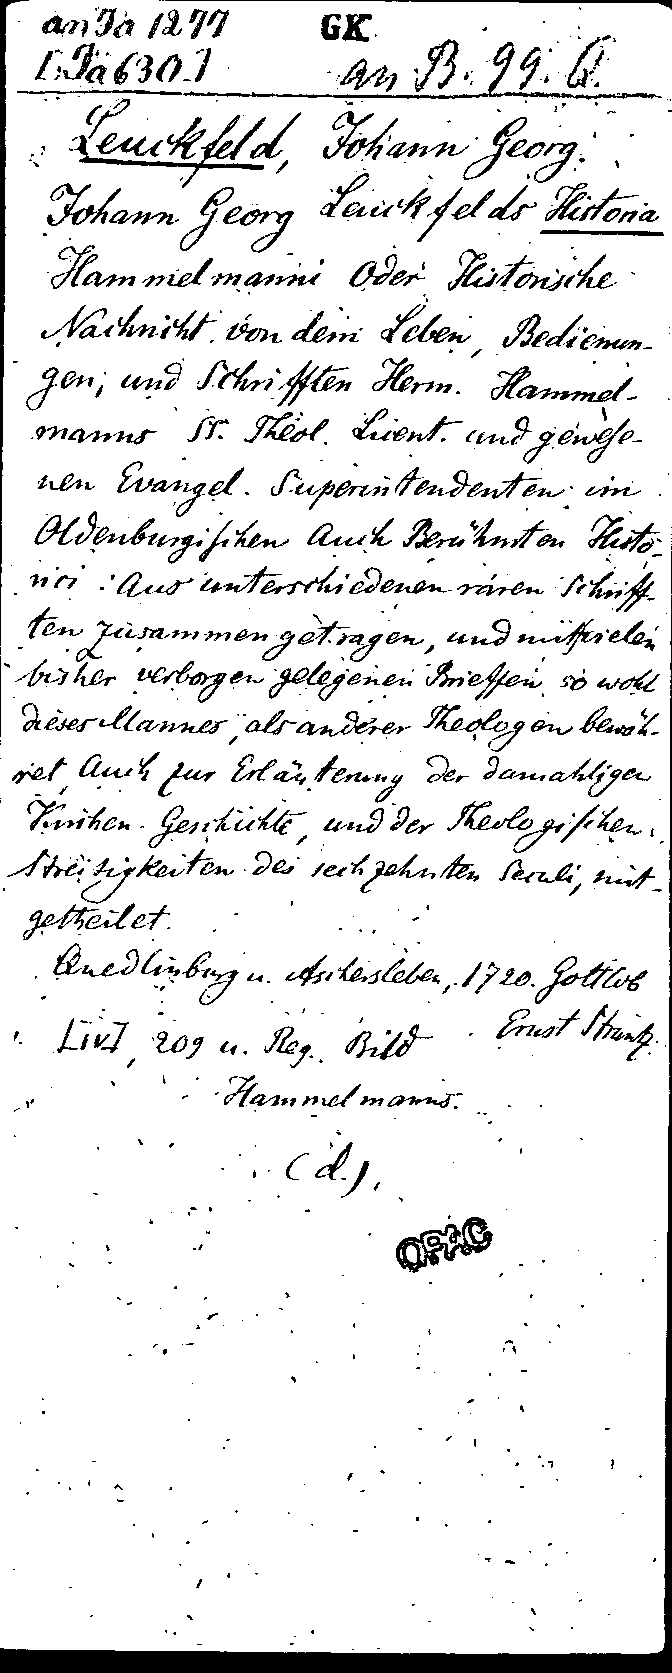 an Ja 1277
GK
[Ja 630.]
an B. 99. Q.
Leuckfeld, Johann Georg.
Johann Georg Leuckfelds Historia
Hammelmanni Oder Historische
Nachricht von dem Leben, Bedienun-
gen, und Schrifften Herm. Hammel-
manns SS. Theol. Licent. und gewese-
nen Evangel. Superintendenten im
Oldenburgischen Auch Berühmten Histo-
rici: Aus unterschiedenen raren Schriff-
ten zusammen getragen, und mit vielen
bisher verborgen gelegenen Brieffen so wohl
dieses Mannes, als anderer Theologen bewäh-
ret, Auch zur Erläuterung der damahligen
Kirchen-Geschichte, und der Theologischen
Streitigkeiten des sechzehnten Seculi, mit-
getheilet.
Quedlinburg u. Aschersleben, 1720. Gottlob
Ernst Struntz.
[IV], 209 u. Reg. Bild
Hammelmanns.
(d.)
OPAC